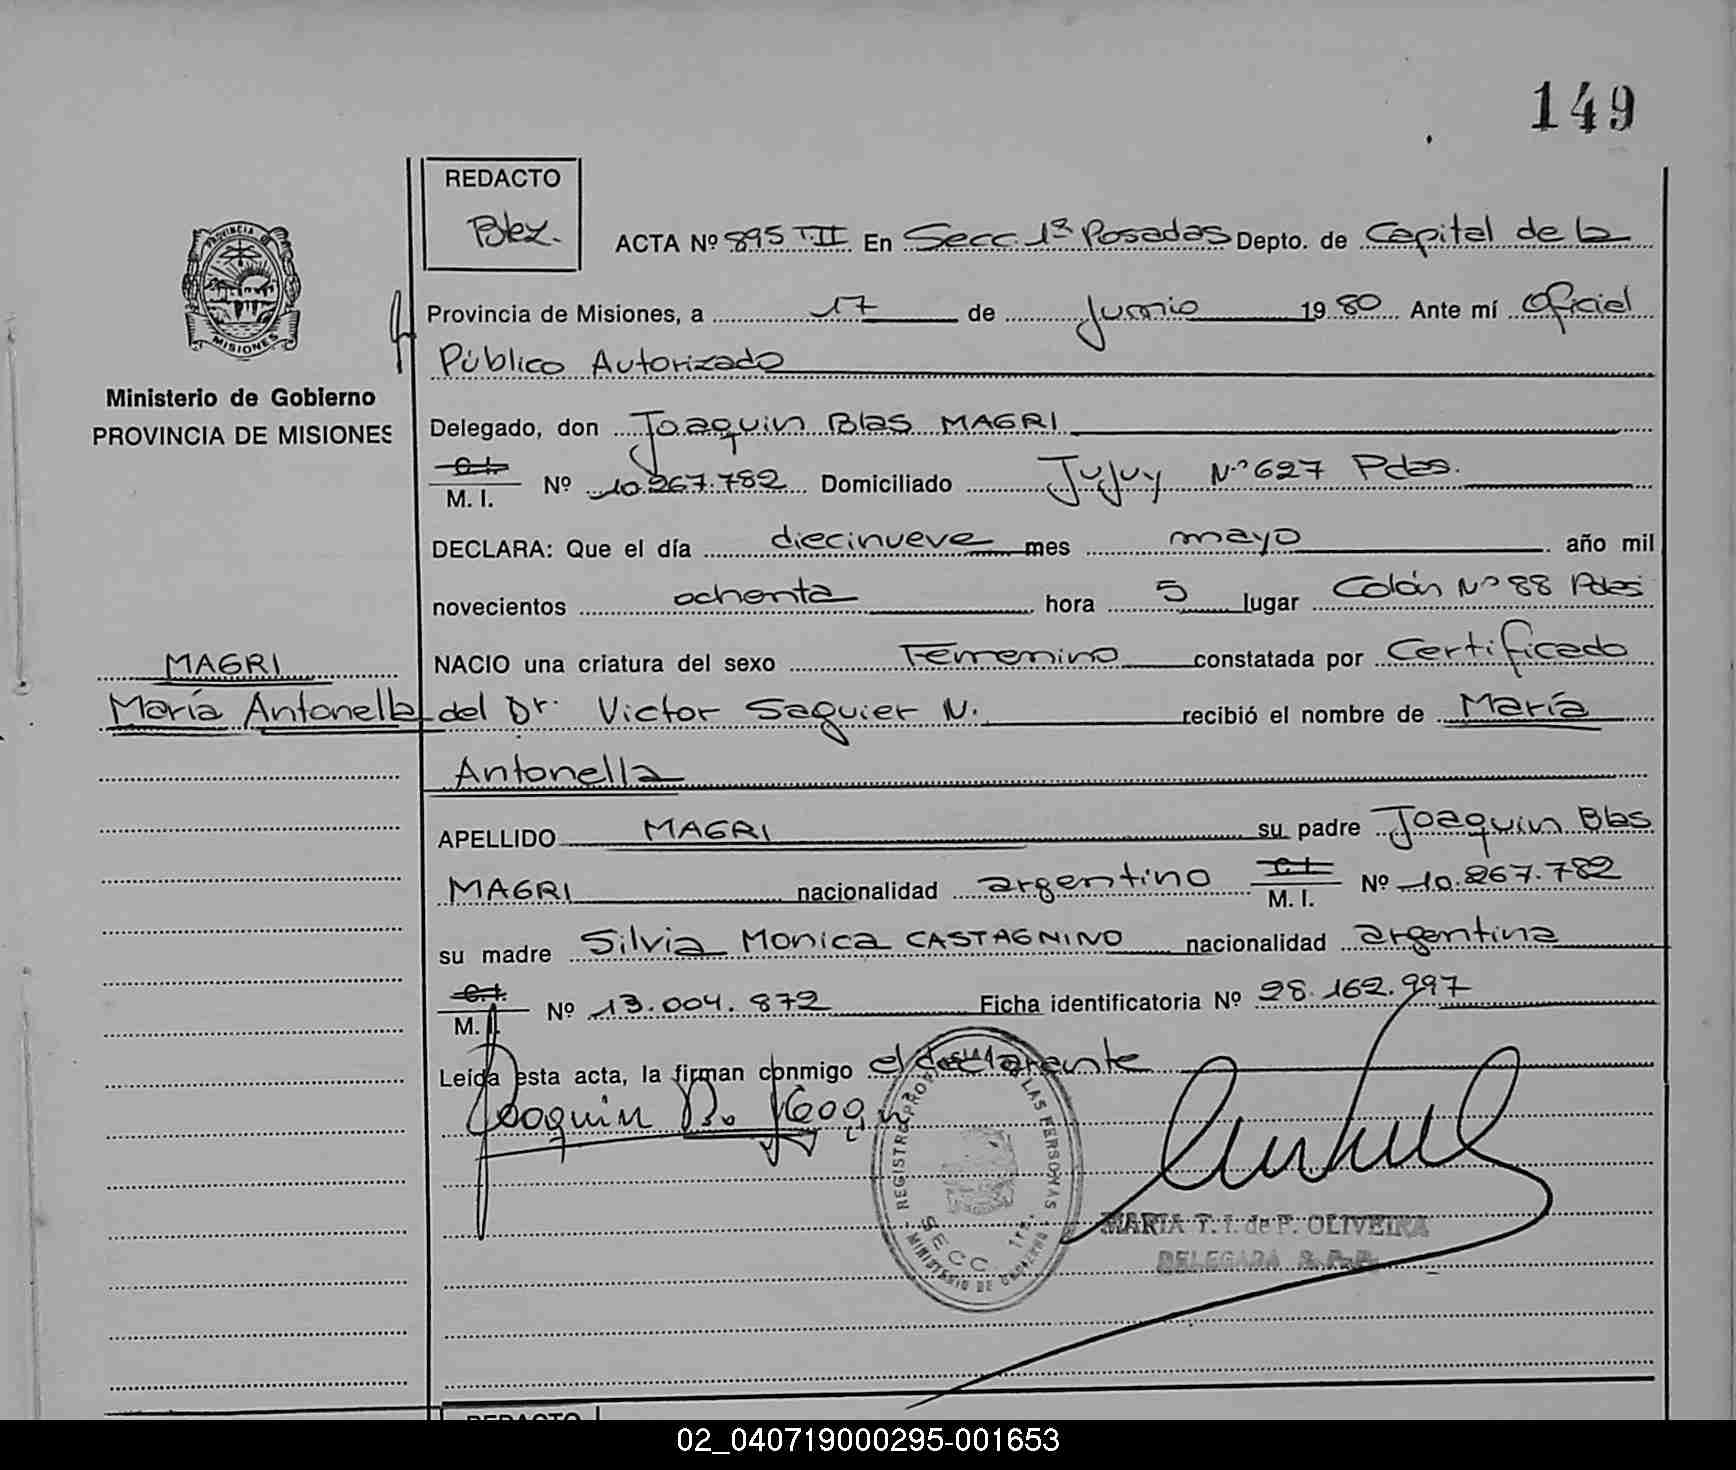 149
REDACTO
ACTA Nº 895 T.II En Secc. 1ª Posadas Depto. de Capital de la
Provincia de Misiones, a 17 de Junio 1980 Ante mí Oficial
Público Autorizado
PROVINCIA DE
MISIONES
Ministerio de Gobierno
PROVINCIA DE MISIONES
Delegado, don Joaquin Blas MAGRI
C.I.
M. I. Nº 10.267.782 Domiciliado Jujuy Nº 627 Pdas.
DECLARA: Que el día diecinueve mes mayo año mil
novecientos ochenta hora 5 lugar Colón Nº 88 Pdas
MAGRI NACIO una criatura del sexo Femenino constatada por Certificado
María Antonella del Dr. Victor Saguier N. recibió el nombre de María
Antonella
APELLIDO MAGRI su padre Joaquin Blas
MAGRI nacionalidad argentino C.I. M. I. Nº 10.267.782
su madre Silvia Monica CASTAGNINO nacionalidad argentina
C.I.
M. I. Nº 13.004.872 Ficha identificatoria Nº 28.162.997
Leída esta acta, la firman conmigo el declarante
Joaquin B.
REGISTRO PROV. DE LAS PERSONAS
SECC. 1ra.
MINISTERIO DE GOBIERNO
MARIA T. I. de P. OLIVEIRA
DELEGADA R.P.P.
REDACTO
02_040719000295-001653